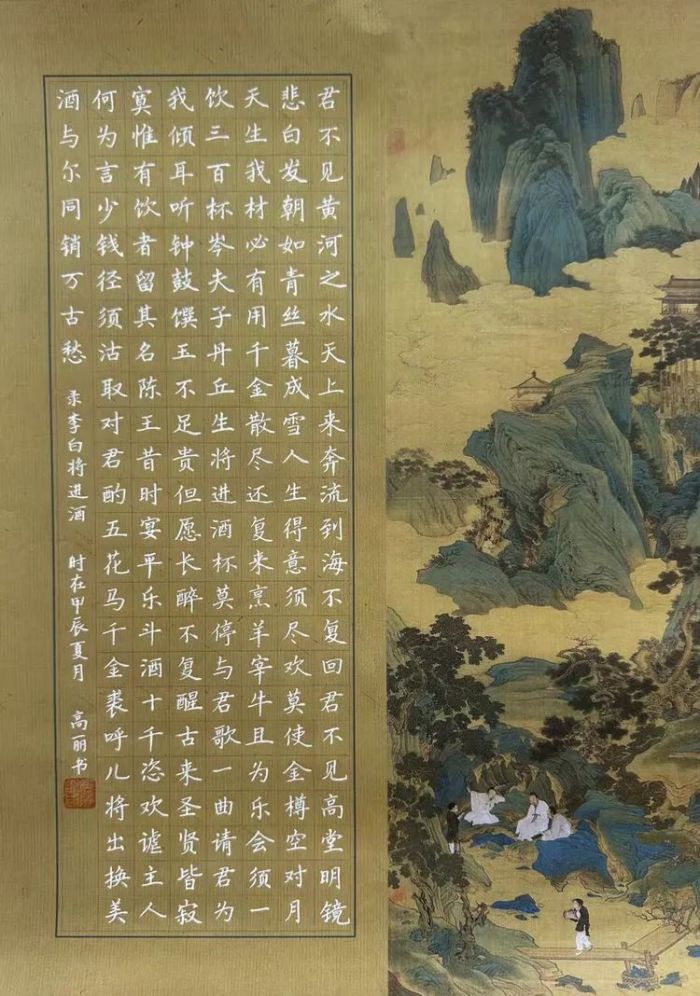 君不见黄河之水天上来奔流到海不复回君不见高堂明镜
悲白发朝如青丝暮成雪人生得意须尽欢莫使金樽空对月
天生我材必有用千金散尽还复来烹羊宰牛且为乐会须一
饮三百杯岑夫子丹丘生将进酒杯莫停与君歌一曲请君为
我倾耳听钟鼓馔玉不足贵但愿长醉不复醒古来圣贤皆寂
寞惟有饮者留其名陈王昔时宴平乐斗酒十千恣欢谑主人
何为言少钱径须沽取对君酌五花马千金裘呼儿将出换美
酒与尔同销万古愁 录李白将进酒 时在甲辰夏月 高丽书